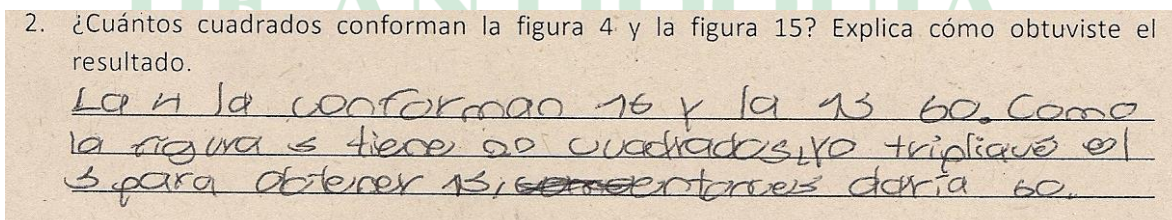 2. ¿Cuántos cuadrados conforman la figura 4 y la figura 15? Explica cómo obtuviste el
resultado.
La 4 la conforman 16 y la 15 60. Como
la figura 5 tiene 20 cuadrados, yo tripliqué el
5 para obtener 15, entonces daría 60.